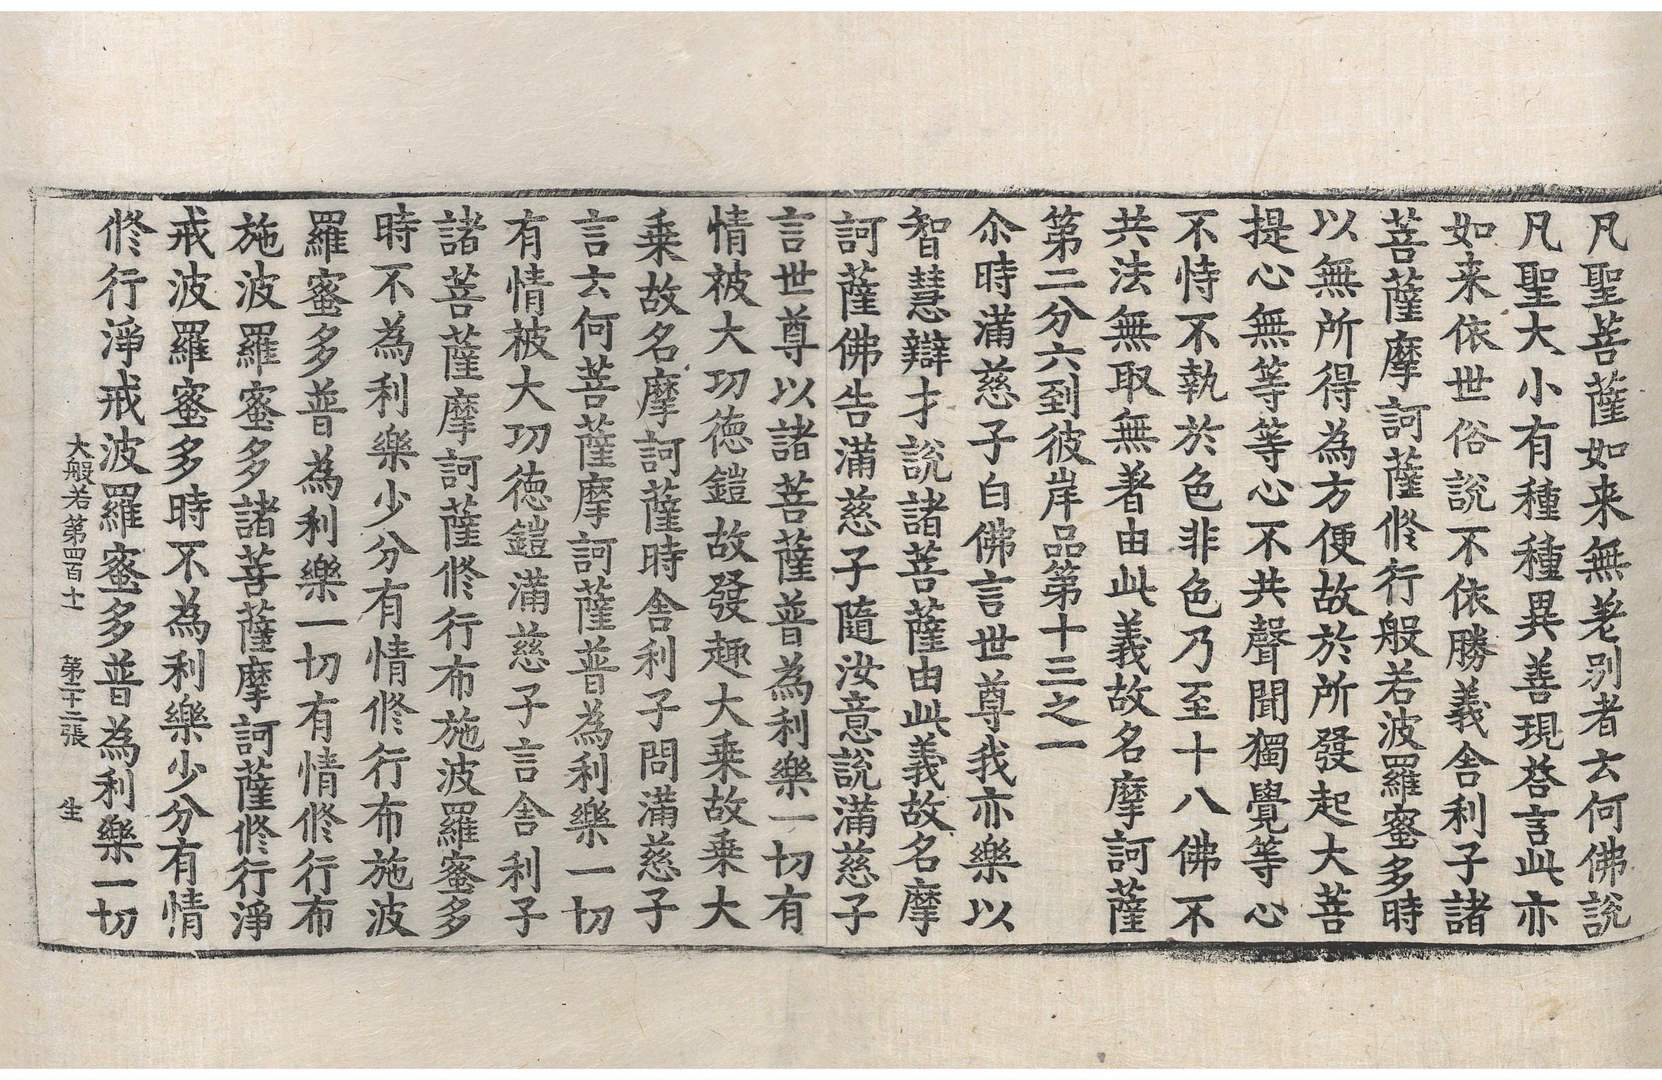 凡聖菩薩如来無差别者云何佛說
凡聖大小有種種異善現荅言此亦
如来依世俗說不依勝義舍利子諸
菩薩摩訶薩修行般若波羅蜜多時
以無所得為方便故於所發起大菩
提心無等等心不共聲聞獨覺等心
不恃不執於色非色乃至十八佛不
共法無取無著由此義故名摩訶薩
第二分六到彼岸品第十三之一
尒時滿慈子白佛言世尊我亦樂以
智慧辯才說諸菩薩由此義故名摩
訶薩佛告滿慈子隨汝意說滿慈子
言世尊以諸菩薩普為利樂一切有
情被大功德鎧故發趣大乗故乗大
乗故名摩訶薩時舍利子問滿慈子
言云何菩薩摩訶薩普為利樂一切
有情被大功德鎧滿慈子言舍利子
諸菩薩摩訶薩修行布施波羅蜜多
時不為利樂少分有情修行布施波
羅蜜多普為利樂一切有情修行布
施波羅蜜多諸菩薩摩訶薩修行淨
戒波羅蜜多時不為利樂少分有情
修行淨戒波羅蜜多普為利樂一切
大般若第四百十一 第二十二張 生